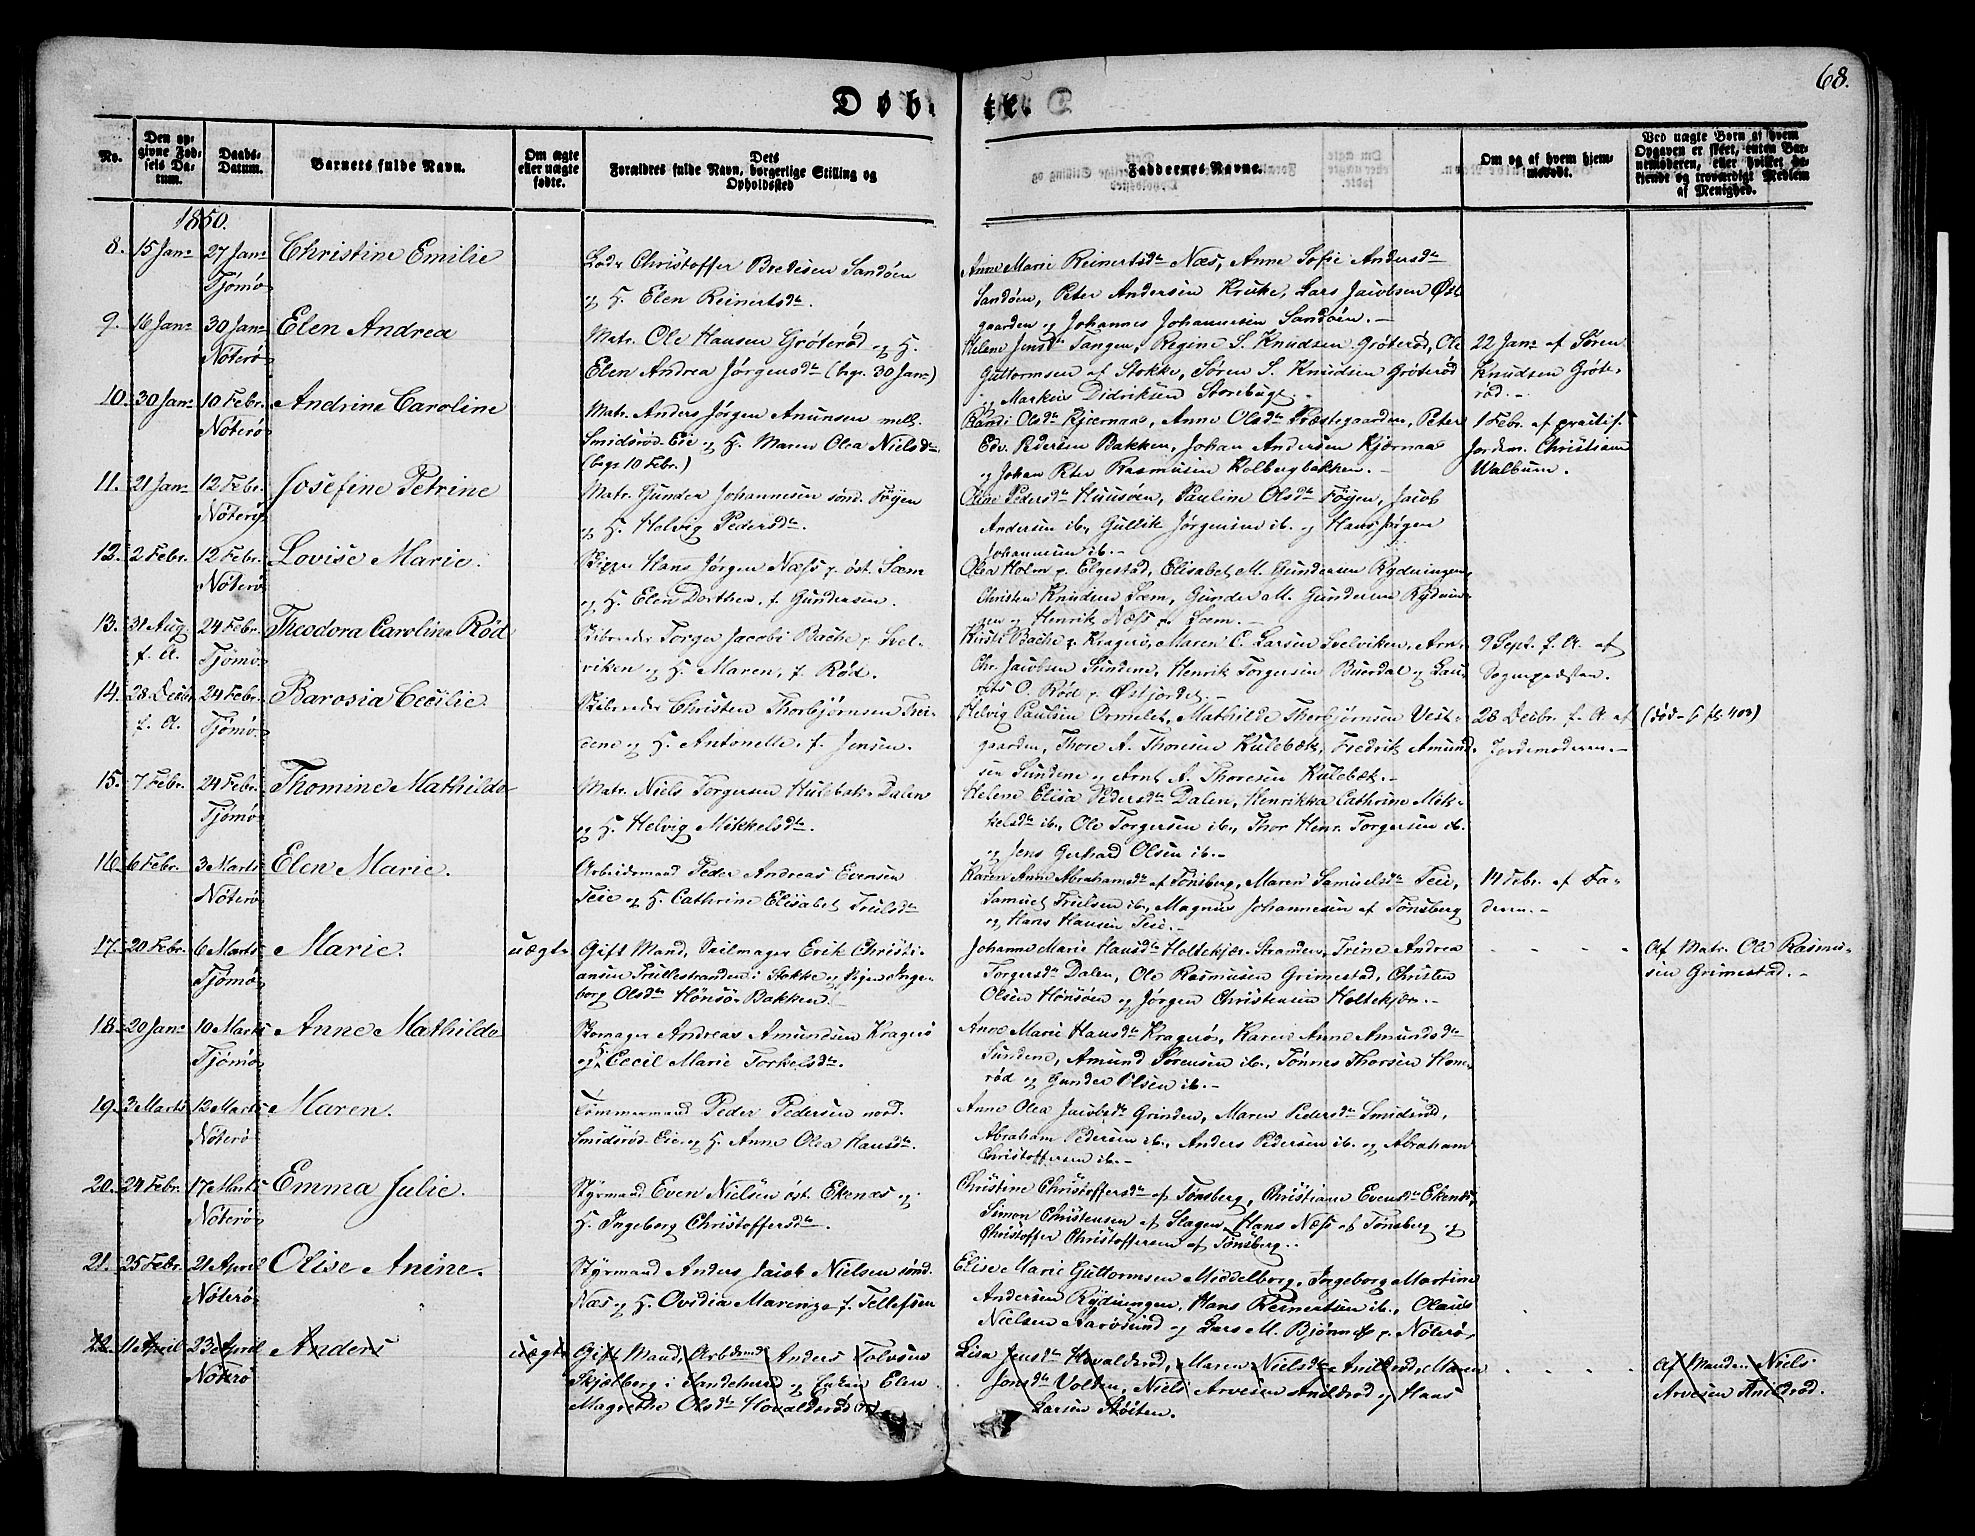 68.
Døbte.
No.
Den opgivne Fødsels Datum.
Daabs-Datum.
Barnets fulde Navn.
Om ægte eller uægte fødte.
Dets Forældres fulde Navn, borgerlige Stilling og Opholdssted
Faddernes Navne.
Om og af hvem hjemmedøbt.
Ved uægte Børn af hvem Opgaven er skeet, enten Barnemoderen, eller hvilket bekjendt og troværdigt Medlem af Menighed.
1850.
8. 15 Janr 27 Janr Tjømø Christine Emilie
Lods Christoffer Bredesen Sandøen
og H. Elen Reinertsdr.
Anne Marie Reinertsdr Næs, Anne Sofie Andersdr
Sandøen, Peter Andersen Kruke, Lars Jacobsen Øst
gaarden og Johannes Johannesen Sandøen.-
9. 16 Janr 30 Janr Nøterø Elen Andrea
Matr. Ole Hansen Grøterød og H.
Elen Andrea Jørgensdr (begr. 30 Janr)
Helene Jensdr Tangen, Regine S. Knudsen Grøterød, Ole
Guttormsen af Stokke, Søren S. Knudsen Grøterød
og Markus Didriksen Storebugt.-
22 Janr af Søren
Knudsen Grøte-
rød.
10. 30 Janr 10 Febr. Nøterø Andrine Caroline
Matr. Anders Jørgen Amunsen mell.
Smidsrød-Eie og H. Maren Olea Nielsdr
(begr 10 Febr.)
Randi Olsdr Kjærnaas, Anne Olsdr Præstegaarden, Peter
Edv. Pedersen Bakken, Johan Andersen Kjærnaas
og Johan Peter Rasmusen Kolbergbakken.-
1 Febr. af practis.
Jordm. Christiane
Walbum.
11. 21 Janr 12 Febr. Nøterø Josefine Petrine
Matr. Gunder Johannesen sønd. Føyen
og H. Helvig Pedersdr.
Oline Pedersdr Huusøen, Pauline Olsdr Føyen, Jacob
Andersen ib., Gullik Jørgensen ib. og Hans Jørgen
Johannesen ib.-
12. 2 Febr. 12 Febr. Nøterø Lovise Marie.
Skipper Hans Jørgen Næss p. øst. Sæm
og H. Elen Dorthea, f. Gundersen.
Olea Holm p. Elgestad, Elisabet M. Gundersen Rydningen,
Christen Knudsen Sæm, Gunder M. Gundersen Rydnin-
gen og Henrik Næss p. Sæm.-
13. 31 Aug. f. A. 24 Febr. Tjømø Theodora Caroline Rød
Skibsreder Torger Jacobs Bache p. Svel-
viken og H. Maren, f. Rød.
Kirsti Bache p. Kragerø, Maren C. Larsen Svelviken, Arn.
Chr. Jacobsen Sundene, Henrik Torgersen Buerdal og Lau-
rits O. Rød p. Østjordet.-
9 Sept. f. A. af
Sognepræsten.
14. 28 Decbr f. A. 24 Febr. Tjømø Barosia Cecilie.
Skibsreder Christen Thorbjørnsen Trei-
dene og H. Antonette, f. Jensen.
Helvig Paulsen Ormelet, Mathilde Thorbjørnsen Vest-
gaarden, Thore A. Thoresen Kulebæk, Fredrik Amund-
sen Sundene og Arnt A. Thoresen Kulebæk.-
28 Decbr. f. A. af
Jordemoderen.-
(død - S. fl. 403)
15. 7 Febr. 24 Febr. Tjømø Thomine Mathilde
Matr. Niels Torgersen Hulebak-Dalen
og H. Helvig Mikkelsdr.
Helene Elisa Pedersdr Dalen, Henrikka Cathrine Mik-
kelsdr ib., Ole Torgersen ib., Thor Henr. Torgersen ib.
og Jens Gerhard Olsen ib.-
16. 6 Febr. 3 Marts Nøterø Elen Marie.
Arbeidsmand Peder Andreas Evensen
Teie og H. Cathrine Elisabet Trulsdr
Karen Anne Abrahamsdr af Tønsberg, Maren Samuelsdr Teie,
Samuel Trulsen ib., Magnus Johannesen af Tønsberg
og Hans Hansen Teie.-
14 Febr. af Fa-
deren.-
17. 20 Febr. 6 Marts Tjømø Marie. uægte
Gift Mand, Seilmager Erik Christi-
ansen Trullestranden i Stokke og Pigen Inge-
borg Olsdr Hønsø-Bakken.
Johanne Marie Hansdr Holtekjær-Stranden, Trine Andrea
Torgersdr Dalen, Ole Rasmusen Grimestad, Christen
Olsen Hønsøen og Jørgen Christensen Holtekjær.-
Af Matr. Ole Rasmu-
sen Grimestad.-
18. 20 Janr 10 Marts Tjømø Anne Mathilde
Skomager Andreas Amundsen Kragerø
og H. Cecil Marie Torkelsdr.
Anne Marie Hansdr Kragerø, Karen Anne Amundsdr
Sundene, Amund Sørensen ib., Tønnes Thorsen Hone-
rød og Gunder Olsen ib.-
19. 3 Marts 12 Marts Nøterø Maren.
Tømmermand Peder Pedersen nord.
Smidsrød-Eie og H. Anne Olea Hansdr.
Anne Olea Jacobsdr Grinden, Maren Pedersdr Smidsrød,
Abraham Pedersen ib., Anders Pedersen ib. og Abraham
Christoffersen ib.-
20. 24 Febr. 17 Marts Nøterø Emma Julie.
Styrmand Even Nielsen øst. Ekenæs og
H. Ingeborg Christoffersdr.
Christine Christoffersdr af Tønsberg, Christiane Evensdr Ekenæs,
Simon Christensen af Slagen, Hans Næss af Tønsberg og
Christoffer Christoffersen af Tønsberg.-
21. 25 Febr. 21 April Nøterø Olise Anine.
Styrmand Anders Jacob Nielsen sønd.
Næs og H. Ovidia Marenze f. Tellefsen
Elise Marie Guttormsen Middelborg, Ingeborg Martine
Andersen Rydningen, Hans Reinertsen ib., Olaus
Nielsen Aarøsund og Lars M. Bjønnes p. Nøterø.
22. 11 April 23 April Nøterø Anders uægte
Gift Mand, Arbdsmd Anders Tolvsen
Skjelberg i Sandeherred og Enken Elen
Magrethe Olsdr Hovaldsrød
Lisa Jensdr Hovaldsrød, Maren Nielsdr Anildrød, Maren
Jonsdr Volden, Niels Arvesen Anildrød og Hans
Larsen Støiten.
Af Manden Niels
Arvesen Anildrød.